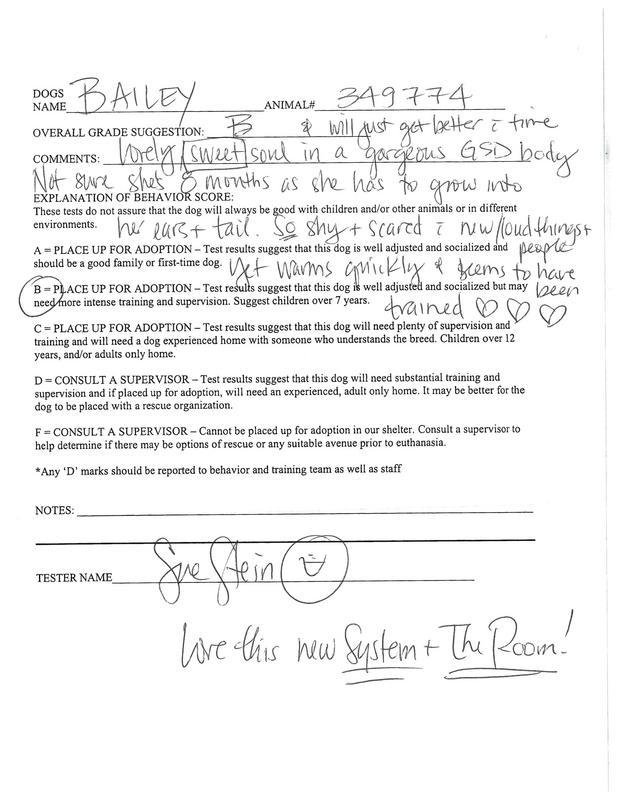 DOGS
NAME BAILEY ANIMAL# 349774
OVERALL GRADE SUGGESTION: B & will just get better c̄ time
COMMENTS: lovely sweet soul in a gorgeous GSD body
Not sure she's 8 months as she has to grow into
EXPLANATION OF BEHAVIOR SCORE:
These tests do not assure that the dog will always be good with children and/or other animals or in different
environments. her ears + tail. So shy + scared c̄ new/loud things +
A = PLACE UP FOR ADOPTION – Test results suggest that this dog is well adjusted and socialized and people
should be a good family or first-time dog. Yet warms quickly & seems to have
B = PLACE UP FOR ADOPTION – Test results suggest that this dog is well adjusted and socialized but may been
need more intense training and supervision. Suggest children over 7 years. trained ♡ ♡ ♡
C = PLACE UP FOR ADOPTION – Test results suggest that this dog will need plenty of supervision and
training and will need a dog experienced home with someone who understands the breed. Children over 12
years, and/or adults only home.
D = CONSULT A SUPERVISOR – Test results suggest that this dog will need substantial training and
supervision and if placed up for adoption, will need an experienced, adult only home. It may be better for the
dog to be placed with a rescue organization.
F = CONSULT A SUPERVISOR – Cannot be placed up for adoption in our shelter. Consult a supervisor to
help determine if there may be options of rescue or any suitable avenue prior to euthanasia.
*Any 'D' marks should be reported to behavior and training team as well as staff
NOTES:
TESTER NAME Sue Stein
Love this new System + The Room!